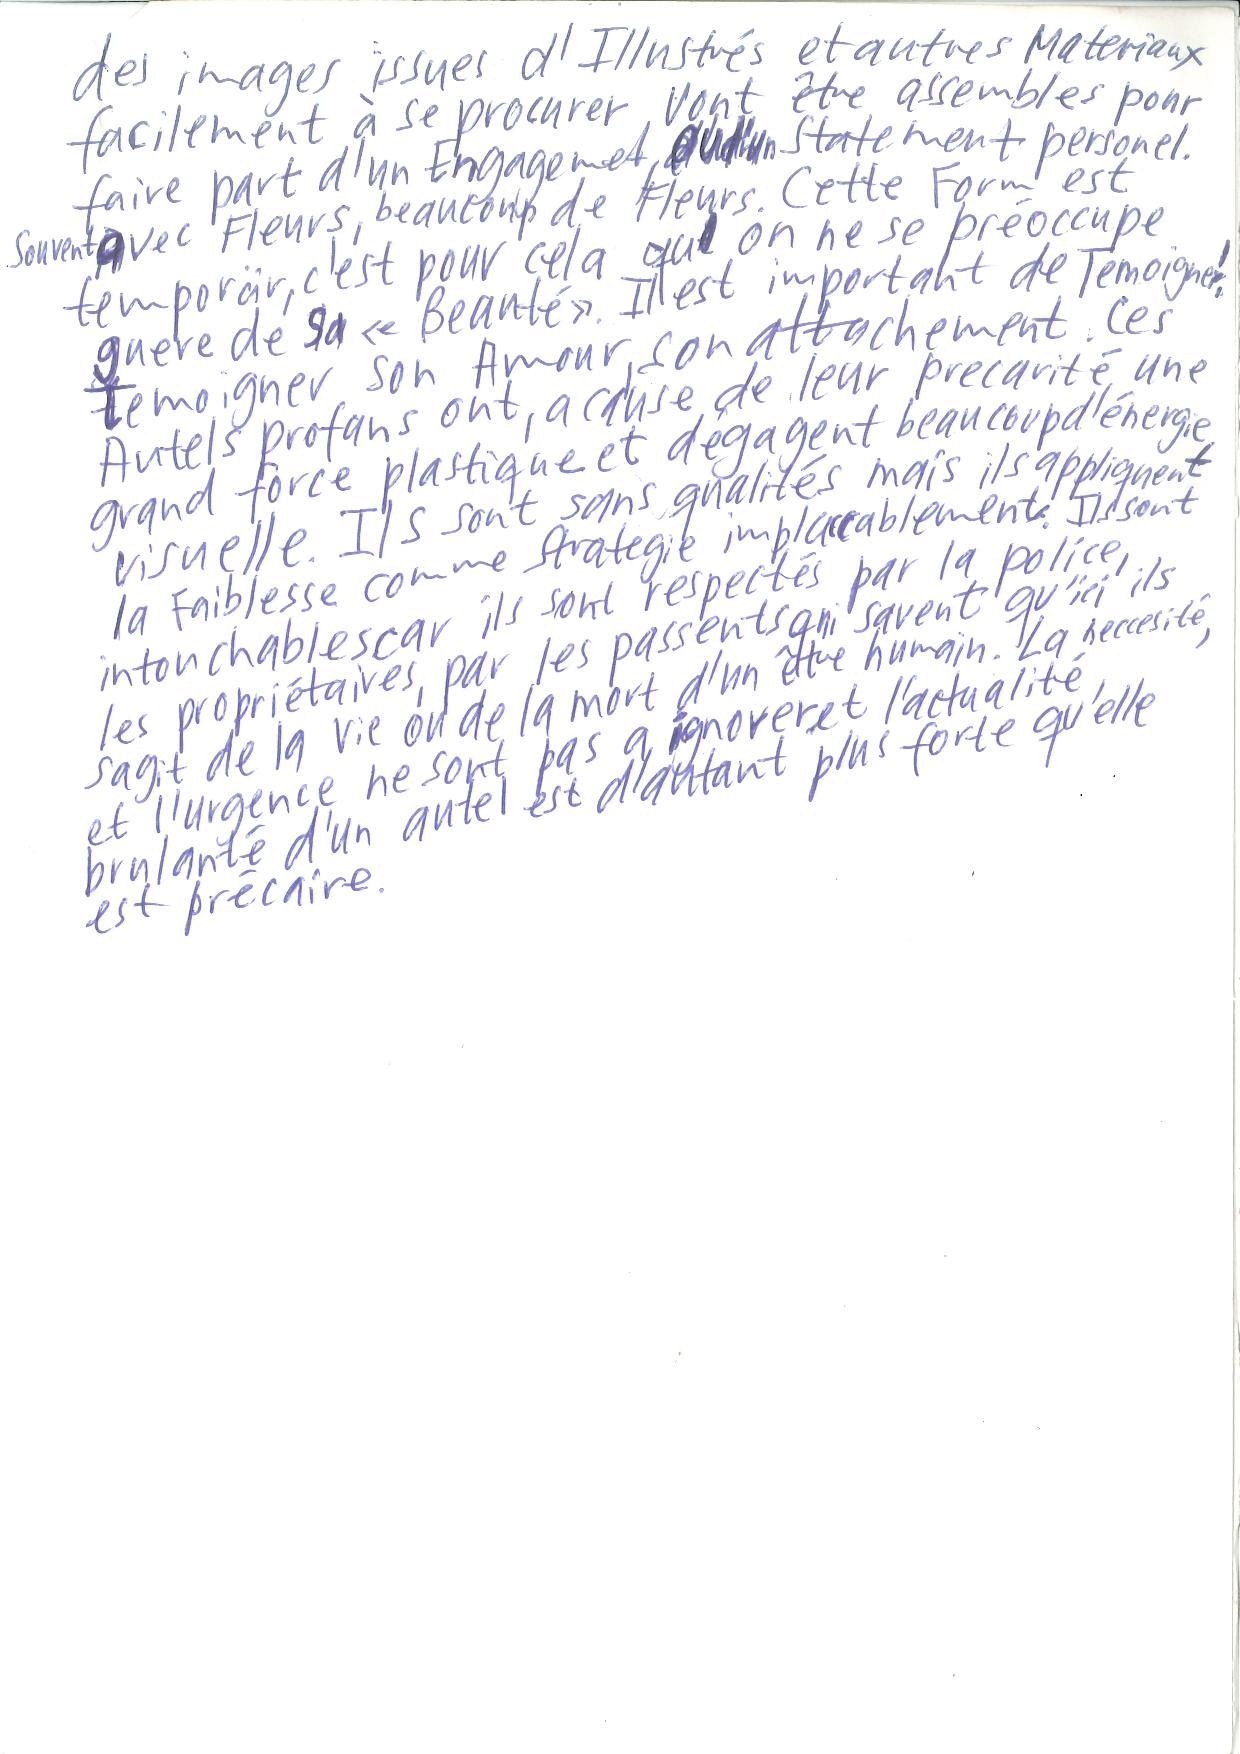 des images issues d'Illustrés et autres Materiaux
facilement à se procurer, vont être assembles pour
faire part d'un Engagemet, ou d'un Statement personel.
Souvent avec Fleurs, beaucoup de Fleurs. Cette Form est
temporär, c'est pour cela qu' on ne se préoccupe
guere de sa « Beauté». Il est important de Temoigner!
Temoigner son Amour, son attachement. Ces
Autels profans ont, a cause de leur precarité, une
grand force plastique et dégagent beaucoup d'énergie
visuelle. Ils sont sans qualités mais ils appliquent
la Faiblesse comme Strategie implaccablement. Ils sont
intouchables car ils sont respectés par la police,
les propriétaires, par les passents qui savent qu'ici ils
sagit de la vie ou de la mort d'un être humain. La neccesité,
et l'urgence ne sont pas a ignorer et l'actualité
brulanté d'un autel est d'autant plus forte qu'elle
est précaire.